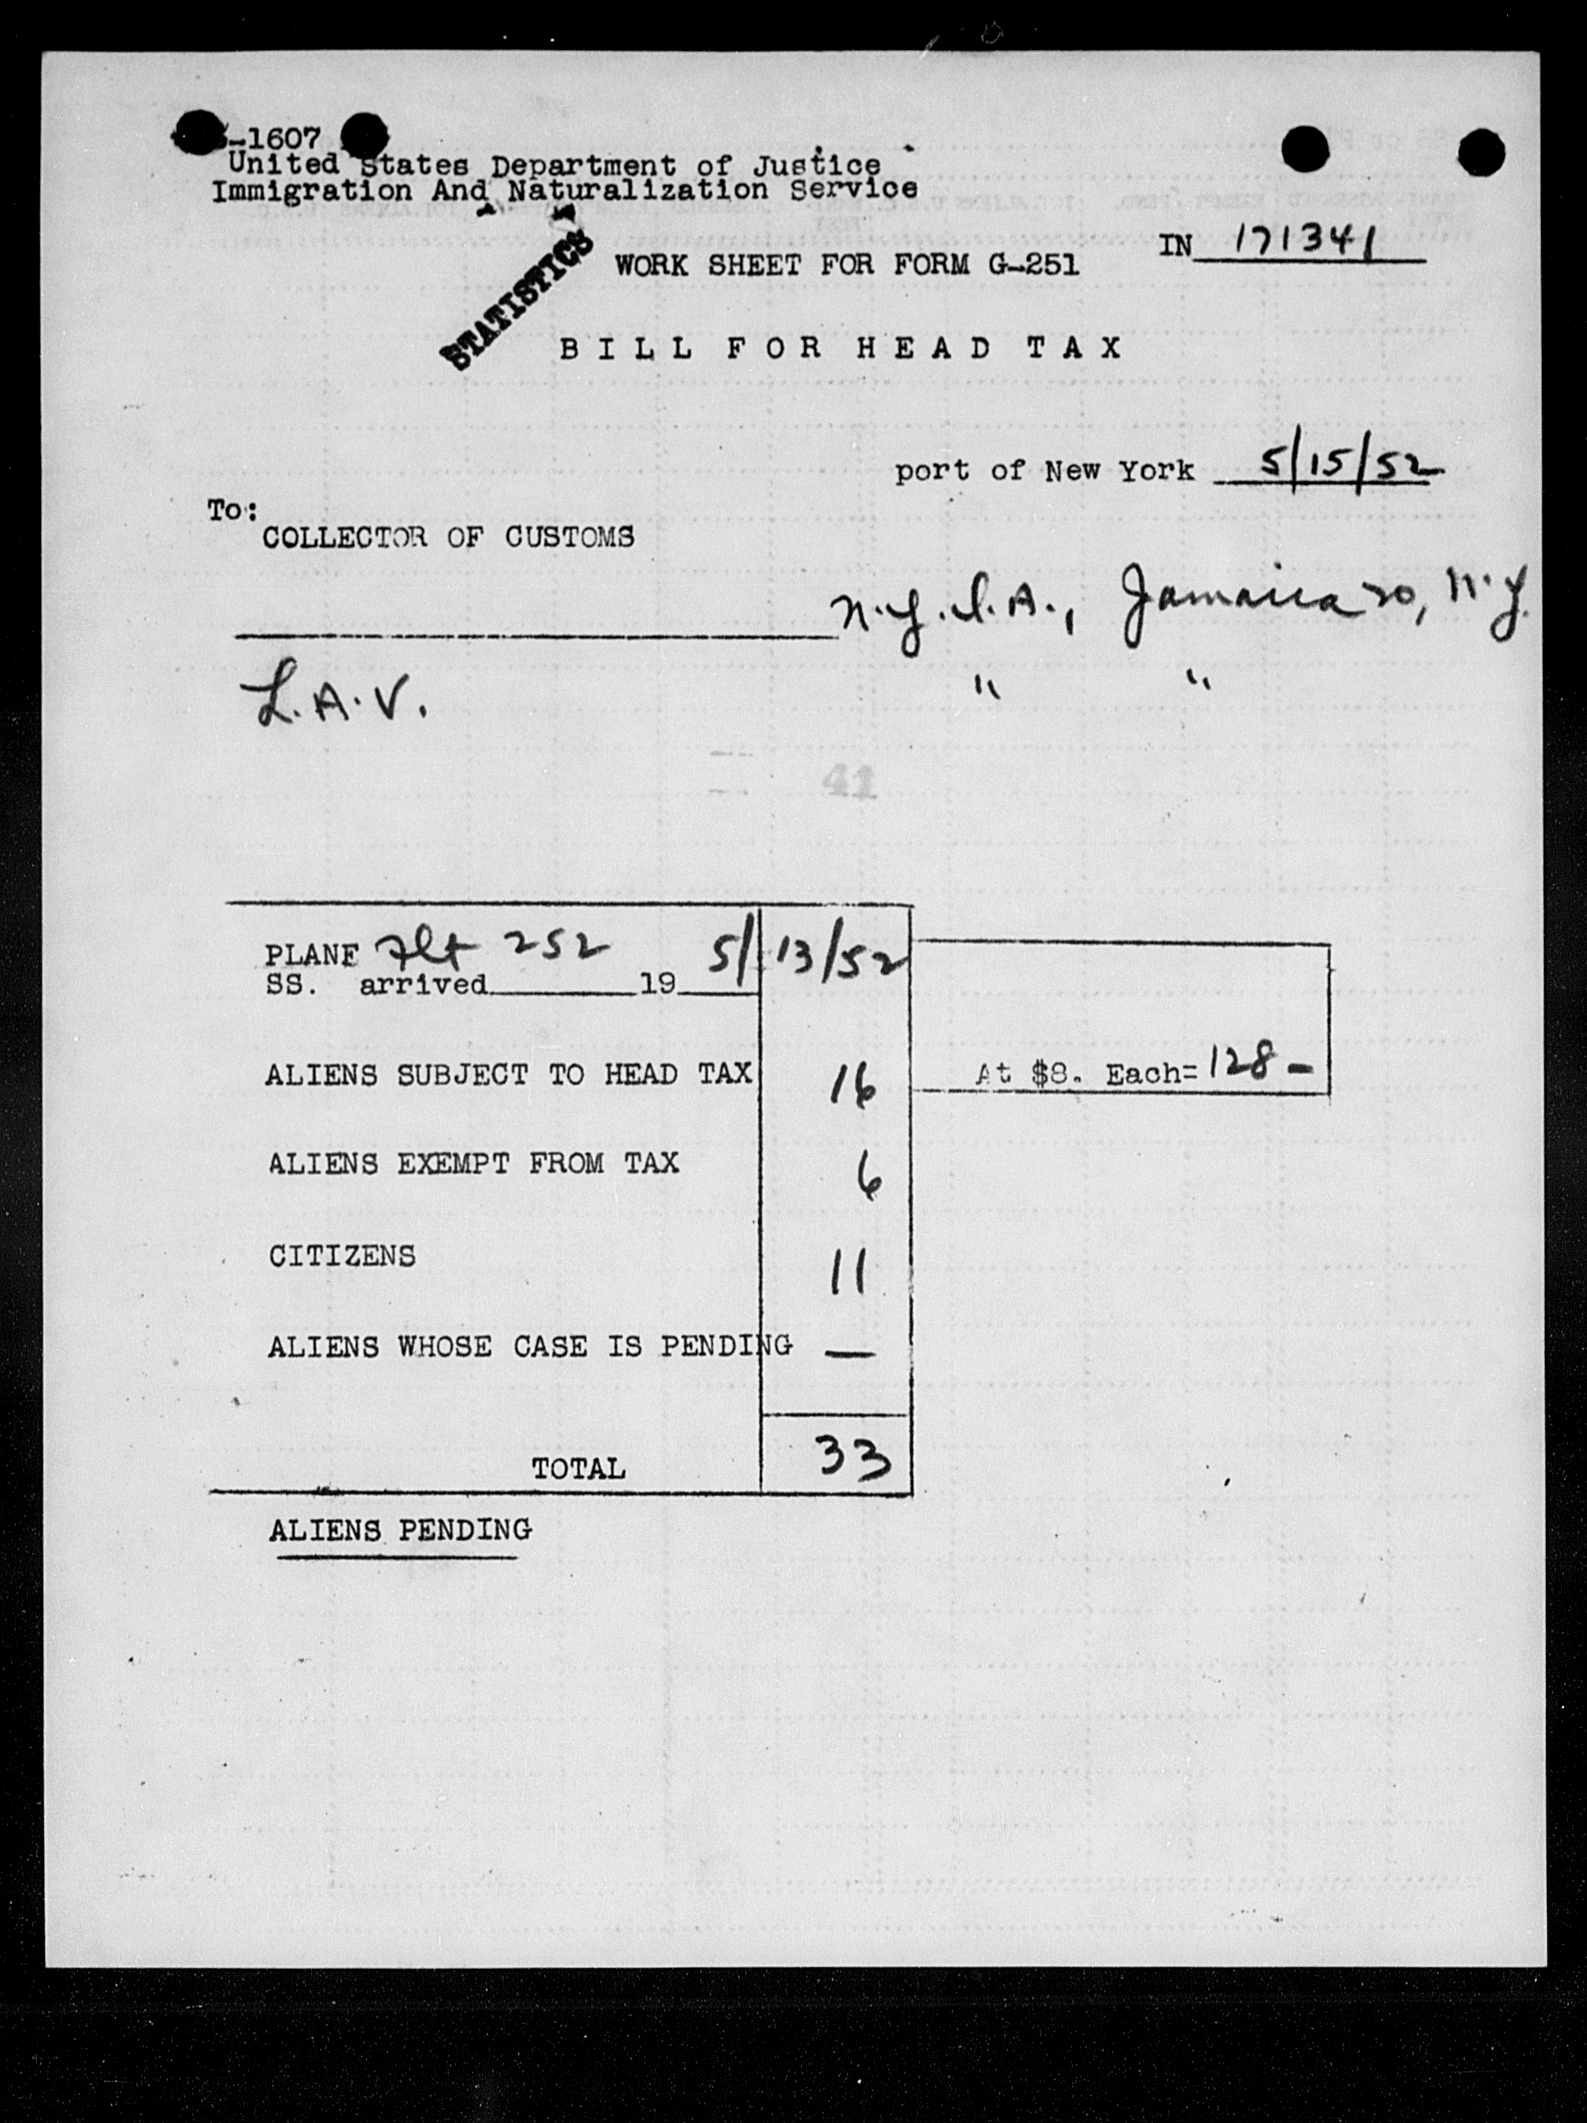 -1607
United States Department of Justice
Immigration And Naturalization Service
STATISTICS
WORK SHEET FOR FORM G-251
IN 171341
BILL FOR HEAD TAX
port of New York 5/15/52
To:
COLLECTOR OF CUSTOMS
N.Y.I.A., Jamaica 20, N.Y.
L.A.V. " "
41
PLANE Flt 252 5/13/52
SS. arrived 19
ALIENS SUBJECT TO HEAD TAX 16 At $8. Each= 128 -
ALIENS EXEMPT FROM TAX 6
CITIZENS 11
ALIENS WHOSE CASE IS PENDING —
TOTAL 33
ALIENS PENDING